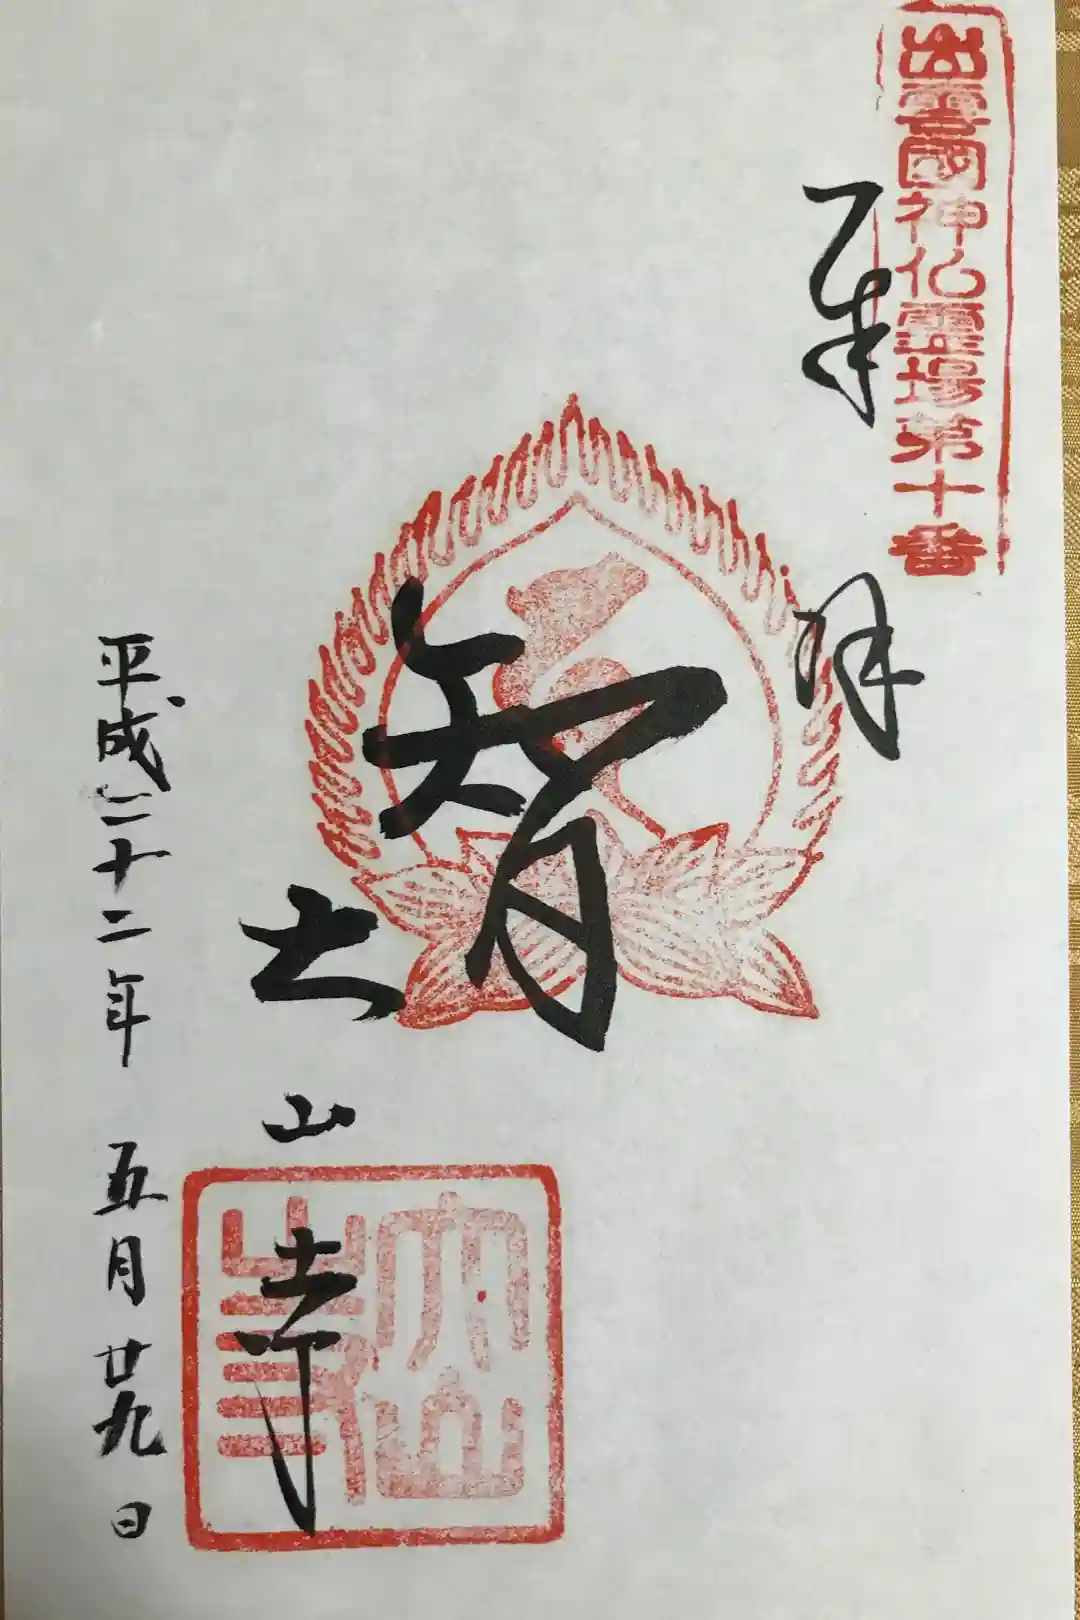 出雲國神仏霊場第十番
奉拝
智
大山寺
大山寺
平成二十二年五月廿九日